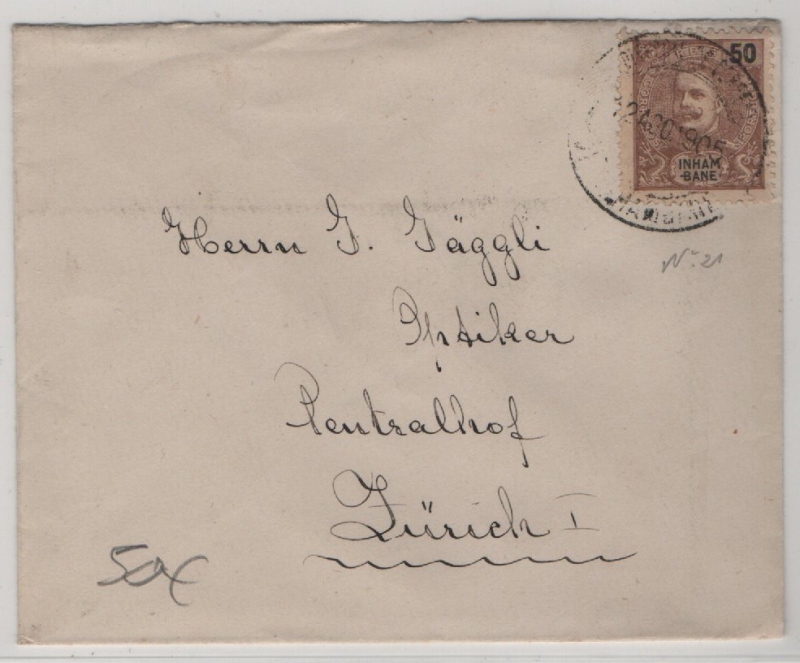 50
INHAM
-BANE
1905
Herrn J. Gäggli
Optiker
Centralhof
Zürich I
No 21
50x